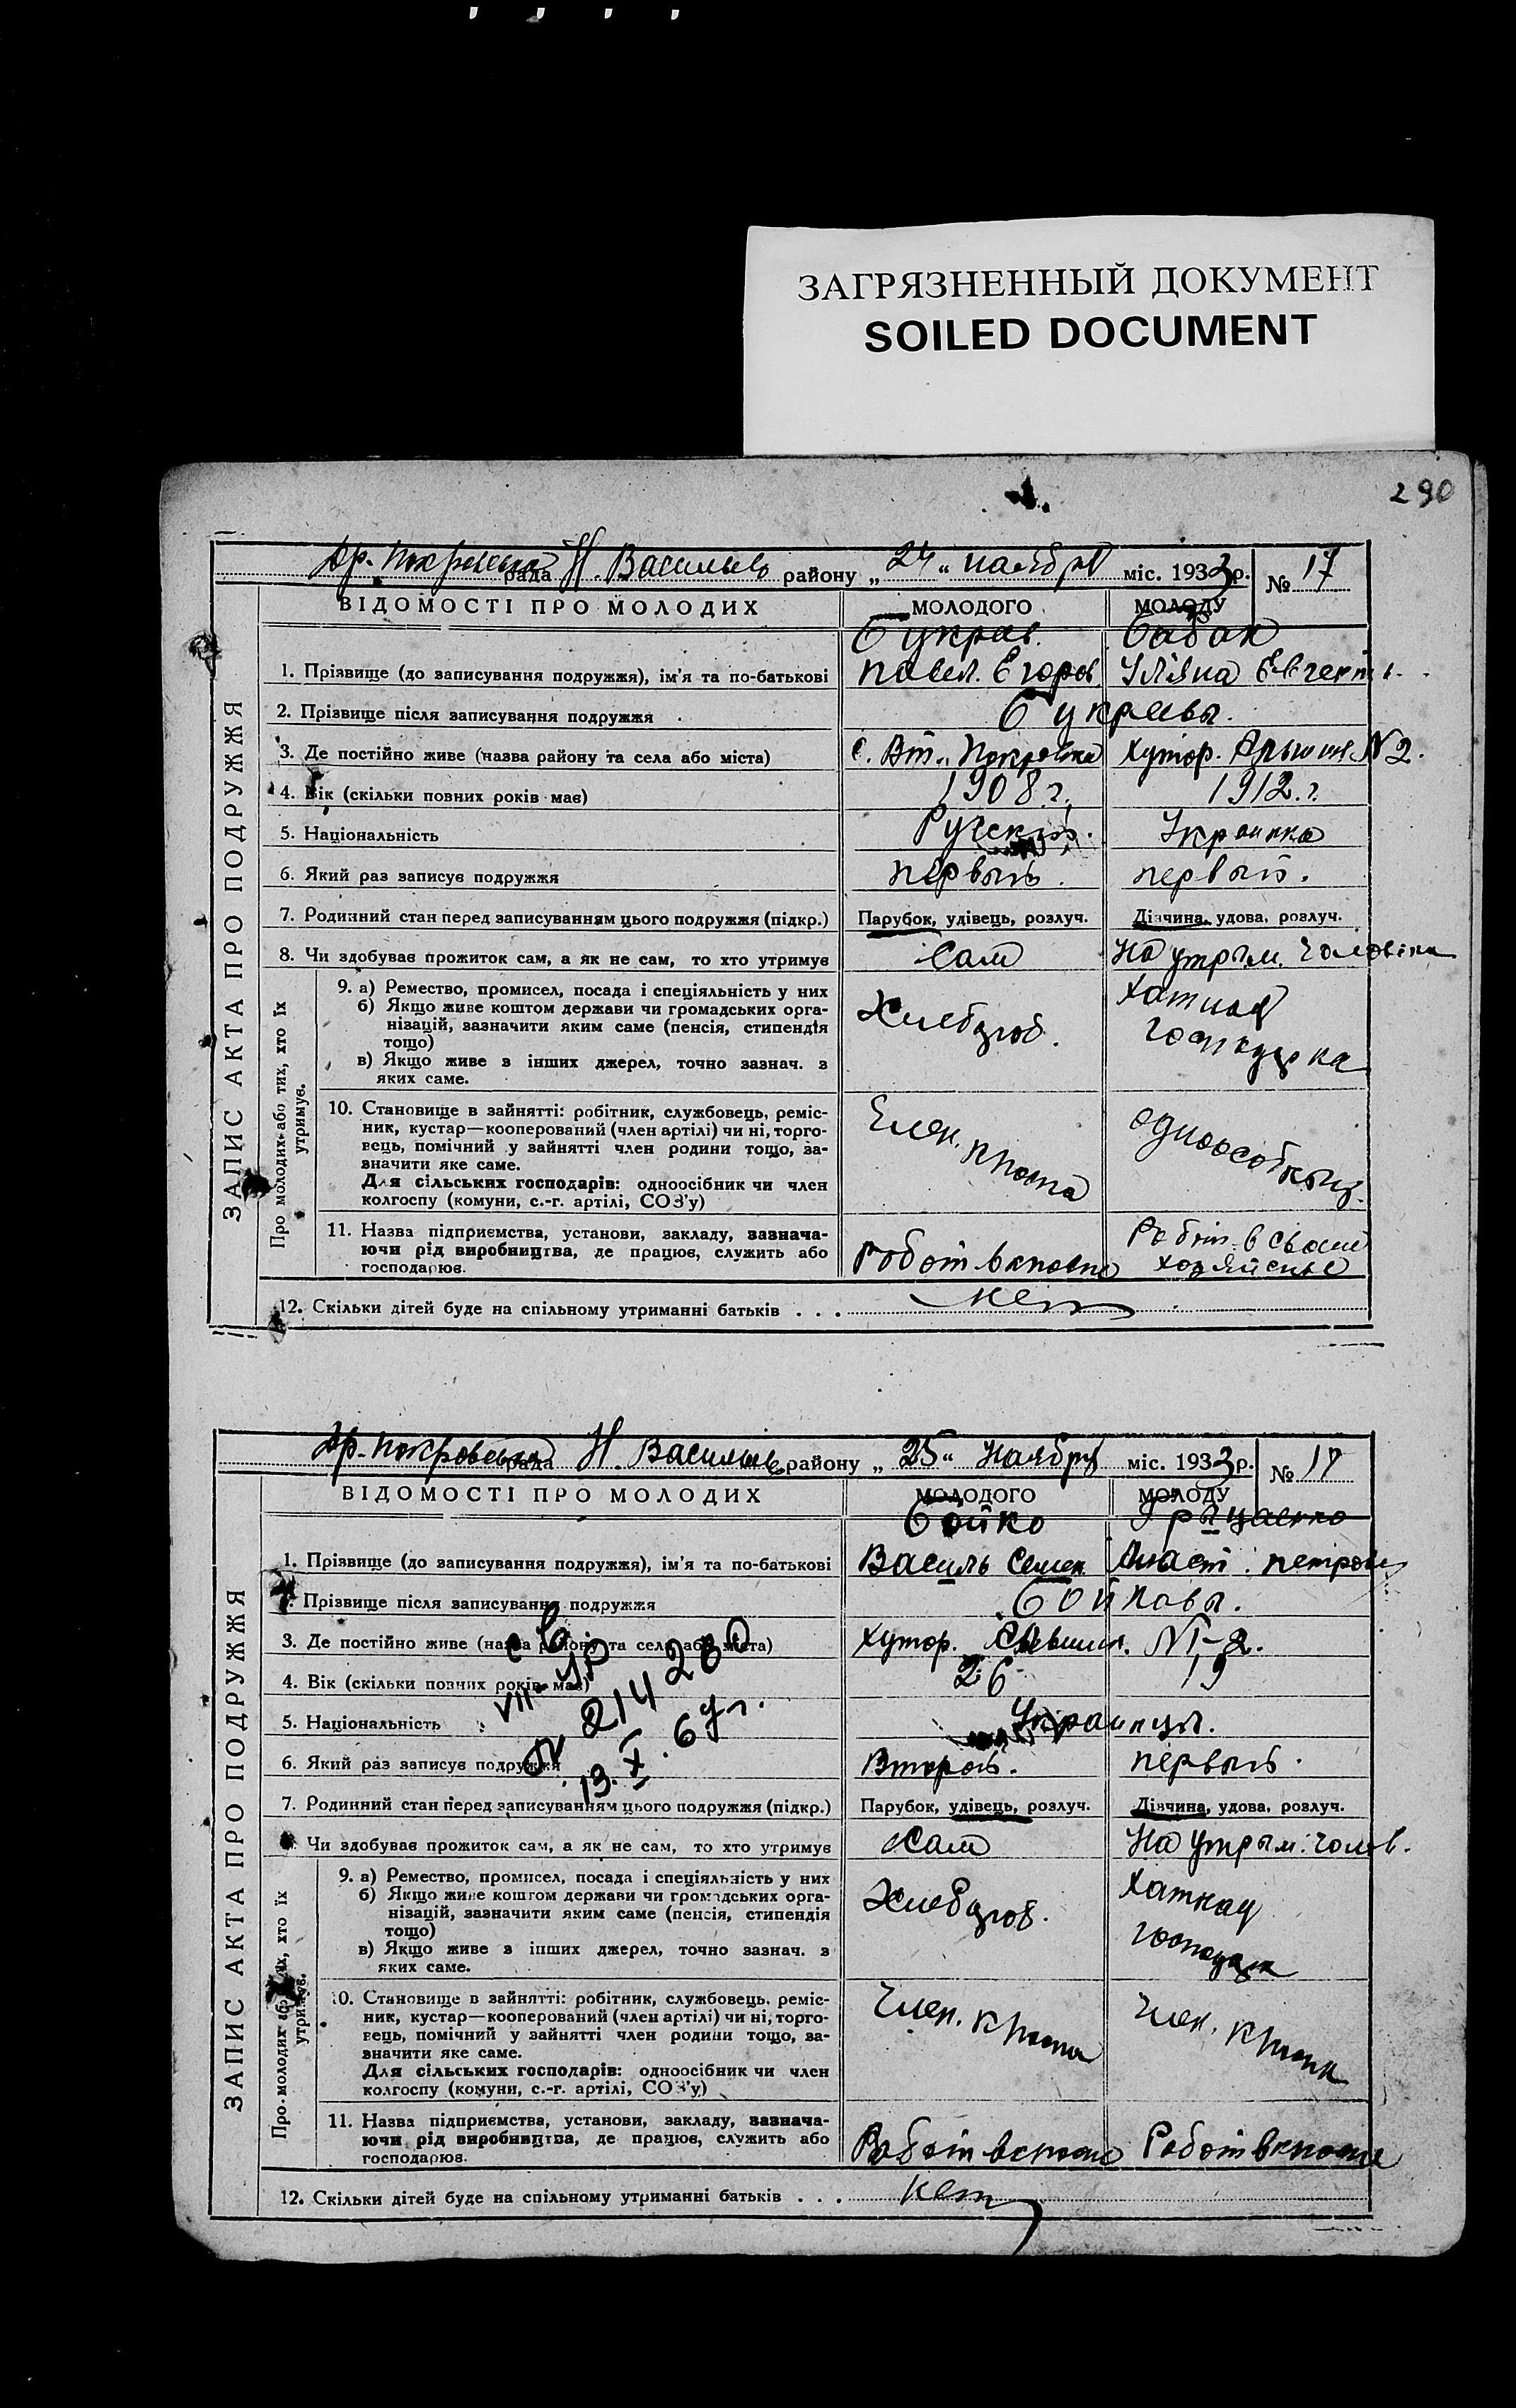 ЗАГРЯЗНЕННЫЙ ДОКУМЕНТ
SOILED DOCUMENT
290
Др. Покровська рада Н. Василів району „24" ноября міс. 1933 р. № 17
ВІДОМОСТІ ПРО МОЛОДИХ МОЛОДОГО МОЛОДУ
ЗАПИС АКТА ПРО ПОДРУЖЖЯ
Букрав. Бабак
1. Прізвище (до записування подружжя), ім'я та по-батькові Павел. Егоров. Уліяна
2. Прізвище після записування подружжя Букравы.
3. Де постійно живе (назва району та села або міста) с. Вт. Покровка Хутор. №2.
4. Вік (скільки повних років має) 1908.г. 1912.г.
5. Національність Русский. Украинка
6. Який раз записує подружжя первый. первый.
7. Родинний стан перед записуванням цього подружжя (підкр.) Парубок, удівець, розлуч. Дівчина, удова, розлуч.
8. Чи здобуває прожиток сам, а як не сам, то хто утримує Сам На утрым. Чоловіка
Про молодих або тих, хто їх утримує.
9. а) Ремество, промисел, посада і спеціяльність у них
б) Якщо живе коштом держави чи громадських орга-
нізацій, зазначити яким саме (пенсія, стипендія
тощо)
в) Якщо живе з інших джерел, точно зазнач. з
яких саме.
Хлебороб.
Хатная
господарка
10. Становище в зайнятті: робітник, службовець, реміс-
ник, кустар—кооперований (член артілі) чи ні, торго-
вець, помічний у зайнятті член родини тощо, за-
значити яке саме.
Для сільських господарів: одноосібник чи член
колгоспу (комуни, с.-г. артілі, СОЗ'у)
Член.
11. Назва підприємства, установи, закладу, зазнача-
ючи рід виробництва, де працює, служить або
господарює.
Робот
Робот. в своем
хозяйсиве
12. Скільки дітей буде на спільному утриманні батьків . . . нет
Др. Покровська рада Н. Василів району „25" Ноября міс. 1933 р. №
ВІДОМОСТІ ПРО МОЛОДИХ МОЛОДОГО МОЛОДУ
ЗАПИС АКТА ПРО ПОДРУЖЖЯ
Бойко Грыцаенко
1. Прізвище (до записування подружжя), ім'я та по-батькові Василь Семен. Анаст. петровн
2. Прізвище після записування подружжя Бойковы.
3. Де постійно живе (назва району та села або міста) Хутор. №-2.
4. Вік (скільки повних років має) 26 19
5. Національність Украинцы.
6. Який раз записує подружжя Второй. первый.
7. Родинний стан перед записуванням цього подружжя (підкр.) Парубок, удівець, розлуч. Дівчина, удова, розлуч.
8. Чи здобуває прожиток сам, а як не сам, то хто утримує Сам На утрым. чолов.
св
VII-ЯР
№ 214280
13.X.67г.
Про молодих або тих, хто їх утримує.
9. а) Ремество, промисел, посада і спеціяльність у них
б) Якщо живе коштом держави чи громадських орга-
нізацій, зазначити яким саме (пенсія, стипендія
тощо)
в) Якщо живе з інших джерел, точно зазнач. з
яких саме.
Хлебороб.
Хатная
господарк
10. Становище в зайнятті: робітник, службовець, реміс-
ник, кустар—кооперований (член артілі) чи ні, торго-
вець, помічний у зайнятті член родини тощо, за-
значити яке саме.
Для сільських господарів: одноосібник чи член
колгоспу (комуни, с.-г. артілі, СОЗ'у)
Член.
Член.
11. Назва підприємства, установи, закладу, зазнача-
ючи рід виробництва, де працює, служить або
господарює.
Работ Робот
12. Скільки дітей буде на спільному утриманні батьків . . . нет